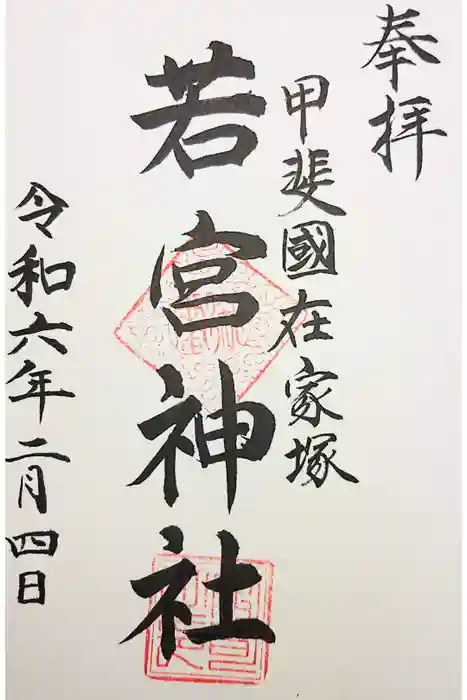 奉拝
甲斐國在家塚
若宮神社
令和六年二月四日